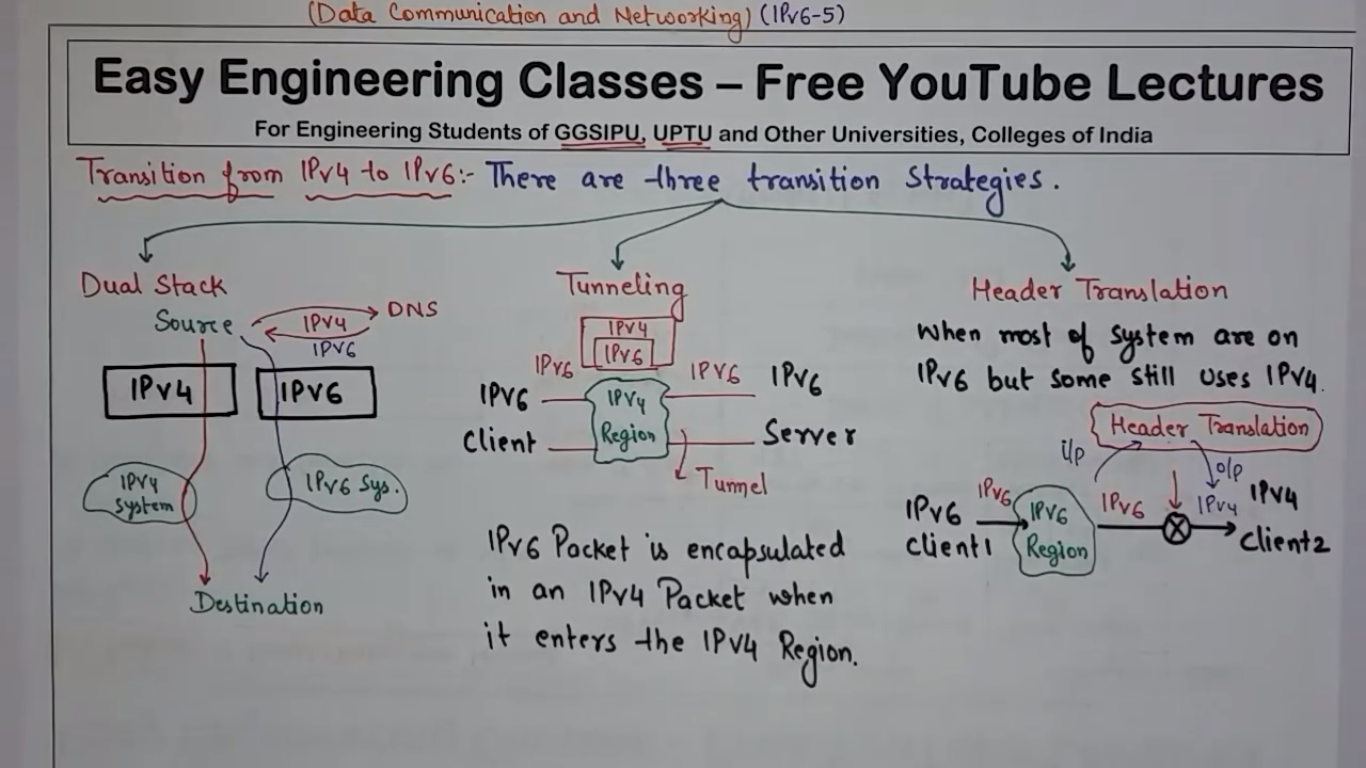 (Data Communication and Networking) (IPv6-5)
Easy Engineering Classes – Free YouTube Lectures
For Engineering Students of GGSIPU, UPTU and Other Universities, Colleges of India
Transition from IPv4 to IPv6:- There are three transition Strategies.
Dual Stack
Source
IPv4
IPV6
DNS
IPv4
IPv6
IPv4
System
IPv6 Sys.
Destination
Tunneling
IPv4
IPv6
IPv6
IPv6
IPv6
Client
IPv4
Region
IPv6
Server
Tunnel
IPv6 Packet is encapsulated
in an IPv4 Packet when
it enters the IPv4 Region.
Header Translation
When most of System are on
IPv6 but some still uses IPv4.
Header Translation
i/p
o/p
IPv6
Client1
IPv6
IPv6
Region
IPv6
IPv4
IPv4
Client2